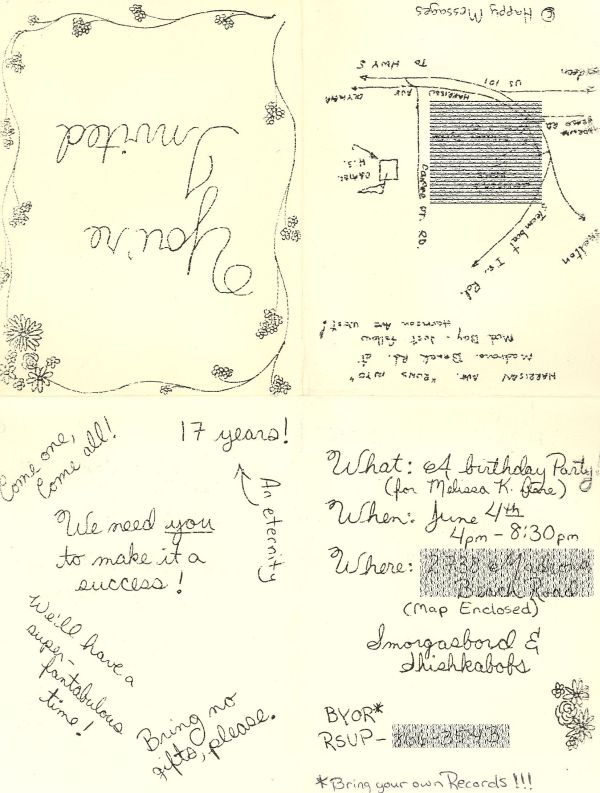 You're
Invited
HARRISON AVE. "RUNS INTO"
Madrona Beach Rd. at
Mud Bay - Just follow
Harrison Ave west!
Steamboat Is. Rd.
Shelton
RD.
H.S.
OLYMPIA
HARRISON AVE
US 101
TO HWY 5
© Happy Messages
Come one,
Come all!
17 years!
An eternity
We need you
to make it a
success!
We'll have a
super-
fantabulous
time!
Bring no
gifts, please.
What: A birthday Party
(for Melissa K.
When: June 4th
4pm - 8:30pm
Where:
Beach Road
(Map Enclosed)
Smorgasbord &
Shishkabobs
BYOR*
RSUP-
*Bring your own Records!!!